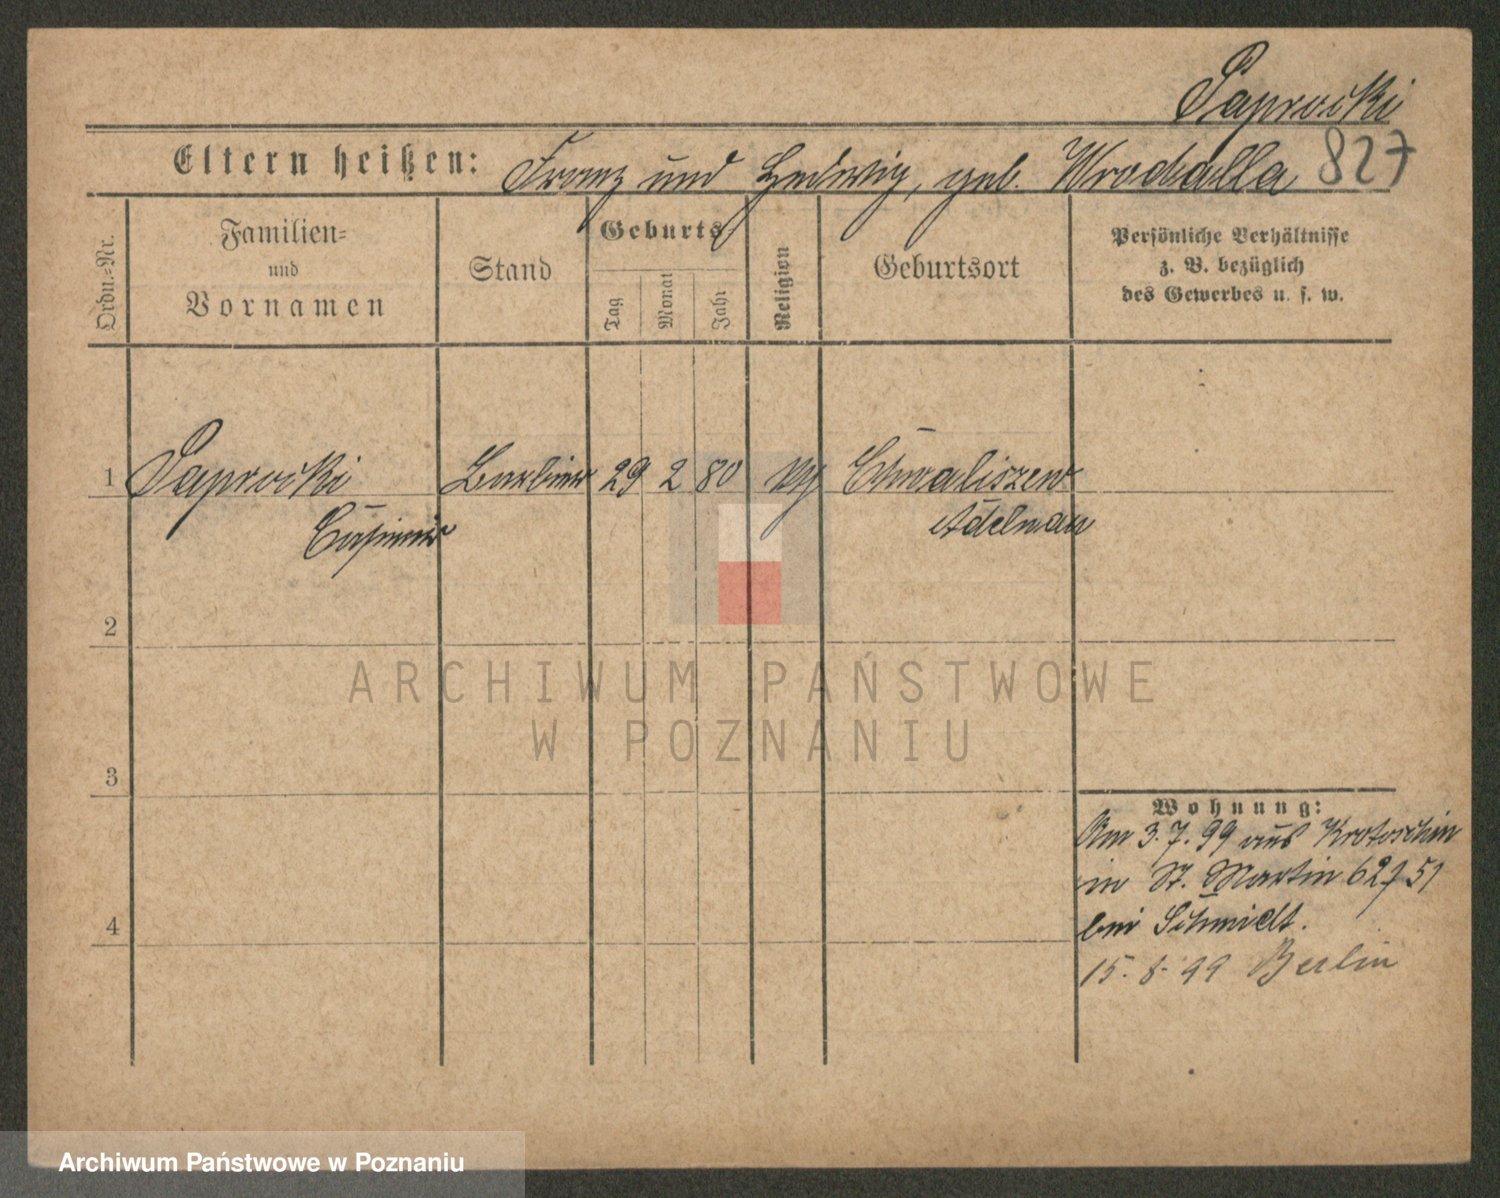 Paprocki
827
Eltern heißen: Franz und Hedwig, geb. Wrodalla
Ordn.-Nr.
Familien-
und
Vornamen
Stand
Geburts
Tag
Monat
Jahr
Religion
Geburtsort
Persönliche Verhältnisse
z. B. bezüglich
des Gewerbes u. s. w.
1 Paprocki Barbier 29 2 80 Chwaliszew
Casimir Adelnau
2
3
4
Wohnung:
Am 3.7.99 aus Krotoschin
in St. Martin 62 51
bei Schmidt.
15.8.99 Berlin
ARCHIWUM PAŃSTWOWE
W POZNANIU
Archiwum Państwowe w Poznaniu